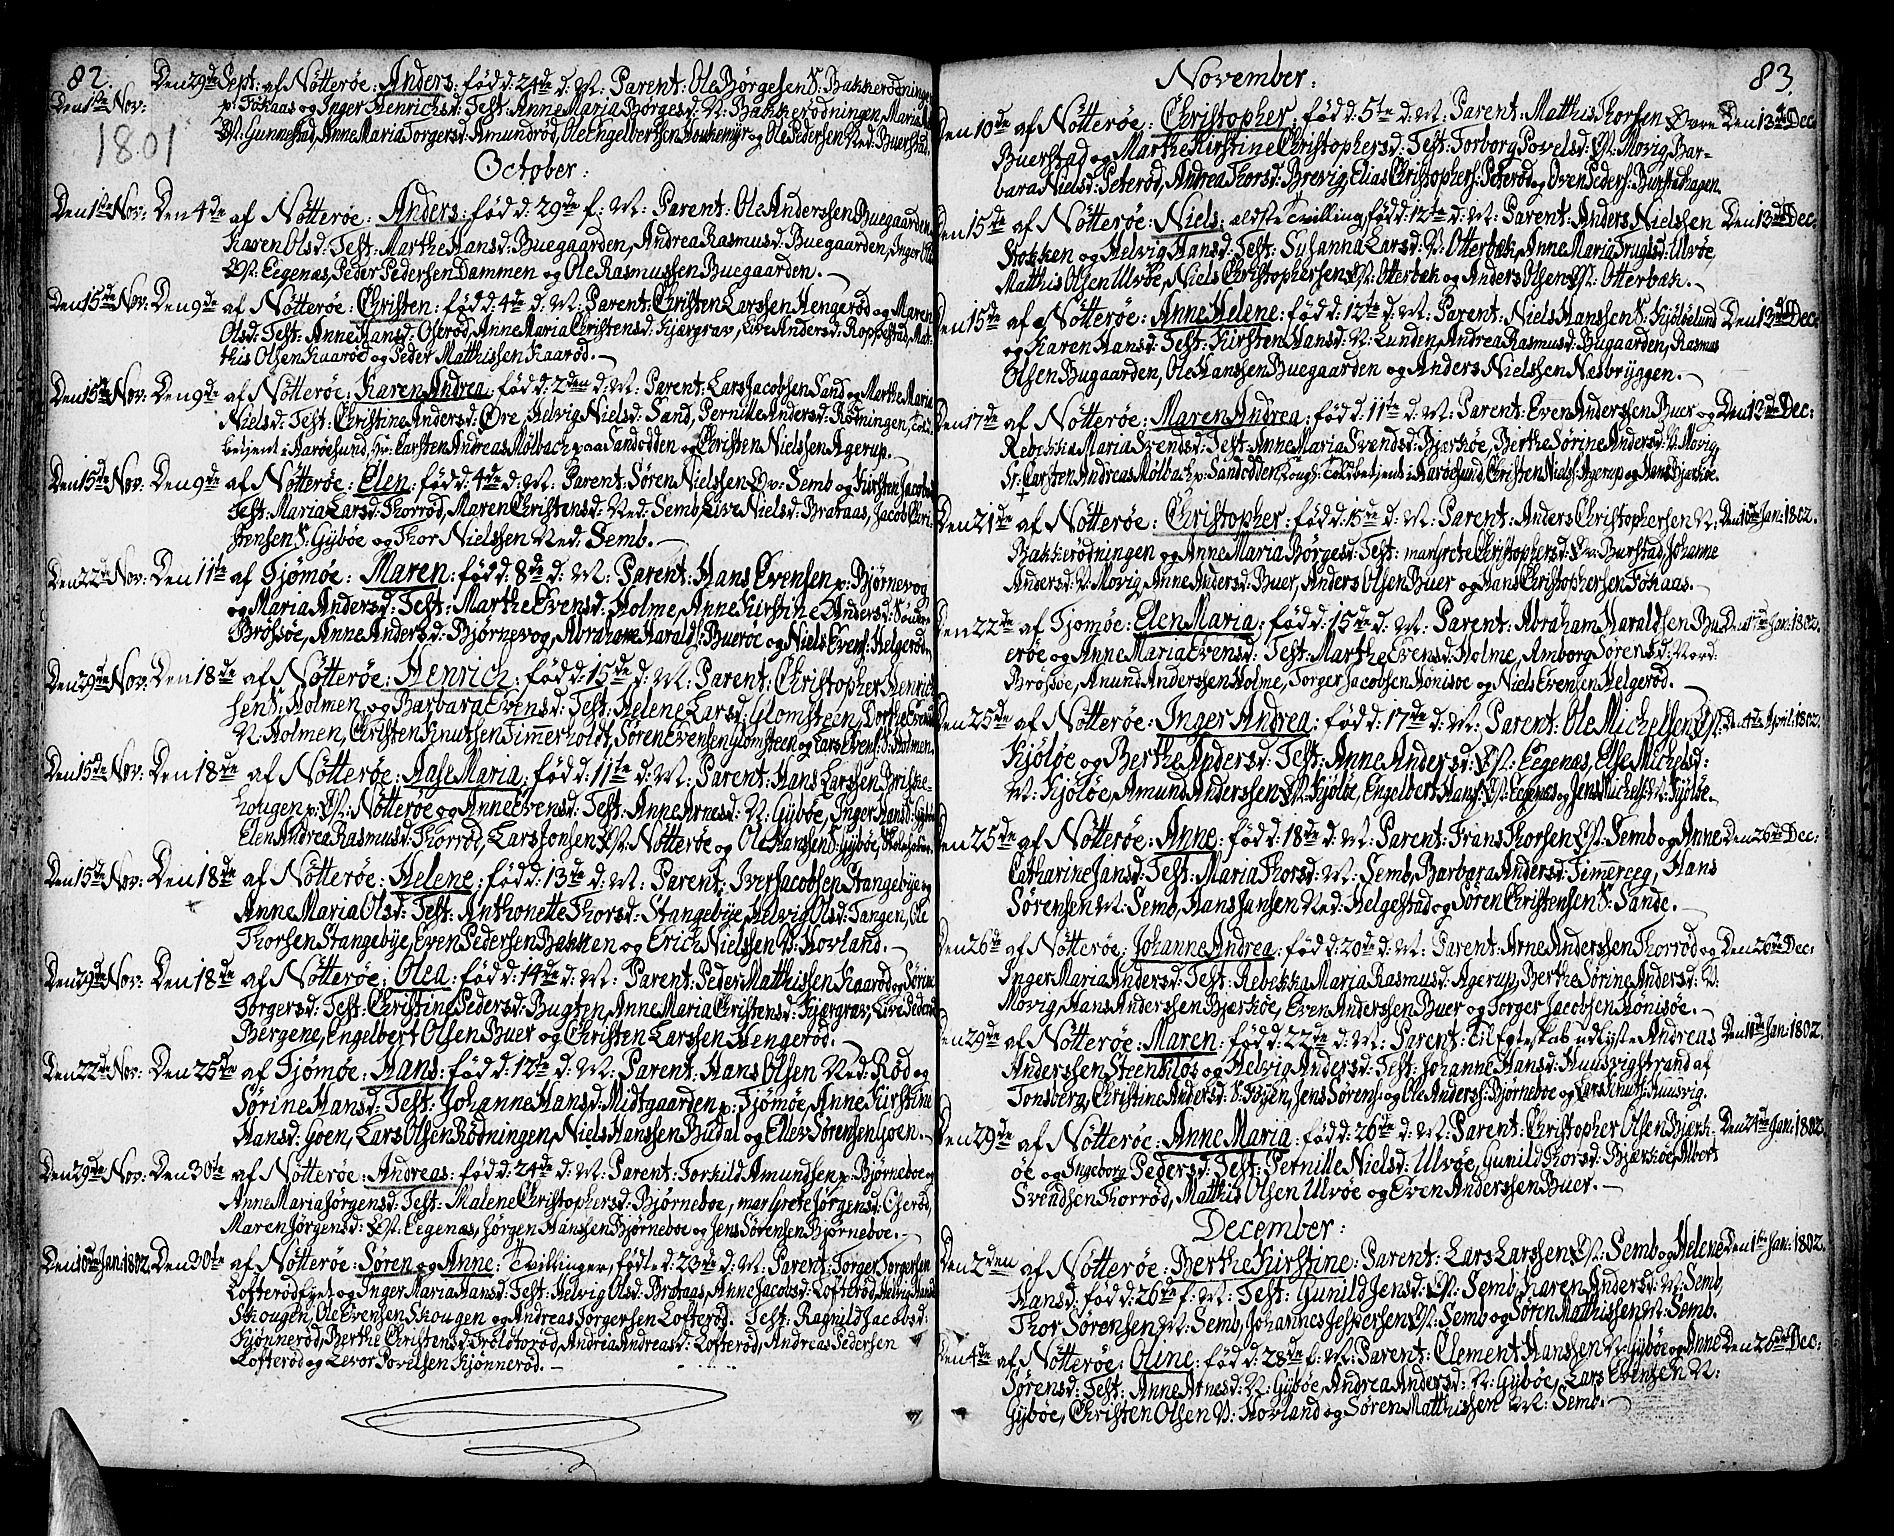 82.
Den 29de Sept: af Nötteröe: Anders: föd d: 24de d: M: Parent: Ole Börgesen S: Bakkerödningen
Den 1ste Nov: p: Fokaas og Inger Henrichsd: Test: Anne Maria Börgesd: N: Bakkerödningen, Maria
1801 V: Gunnestad, Anne Maria Torgersd: Amundröd, Ole Engelbertsen og Ole Pedersen Ned: Buerstad.
October:
Den 1ste Nov: Den 4de af Nötteröe: Anders: föd d: 29de f: M: Parent: Ole Anderssen Buegaarden
Karen Olsd: Test: Marthe Hansd: Buegaarden, Andrea Rasmusd: Buegaarden, Inger
Øst: Eegenæs, Peder Pedersen Dammen og Ole Rasmussen Buegaarden. –
Den 15de Nov: Den 9de af Nötteröe: Christen: föd d: 4de d: M: Parent: Christen Larssen Hengeröd og Maren
Olsd: Test: Anne Hansd: Oseröd, Anne Maria Christensd: Kjærgrav, Live Andersd: Roppestad, Mat-
this Olsen Kaaröd og Peder Matthissen Kaaröd. –
Den 15de Nov: Den 9de af Nötteröe: Karen Andrea: föd d: 2den d: M: Parent: Lars Jacobsen Sand og Marthe Maria
Nielsd: Test: Christine Andersd: Øre, Helvig Nielsd: Sand, Pernille Andersd: Rödningen, Told-
betjent i Aaröesund, Hr: Carsten Andreas Mölbach paa Sandodden og Christen Nielssen Agerup. –
Den 15de Nov: Den 9de af Nötteröe: Elen: föd d: 4de d: M: Parent: Sören Nielssen Øv: Semb og Kirsten Jacobsd:
Test: Maria Larsd: Thorröd, Maren Christensd: Ned: Semb, Live Nielsd: Brataas, Jacob Chri-
stensen S: Gipöe og Thor Nielssen Ned: Semb. –
Den 22de Nov: Den 11te af Tjömöe: Maren: föd d: 8de d: M: Parent: Hans Evensen p: Björnevog
og Maria Andersd: Test: Marthe Evensd: Holme, Anne Kirstine Andersd: Sönder
Brössöe, Anne Andersd: Björnevog, Abraham Harald: Bueröe og Niels Evens: Helgeröd.
Den 29de Nov: Den 18de af Nötteröe: Henrich: föd d: 15de d: M: Parent: Christopher Henrich
sen S: Holmen og Barbara Evensd: Test: Helene Larsd: Glomsteen, Dorthe Evensd:
N: Holmen, Christen Knutsen Timmerholdt, Sören Evensen Glomsteen og Lars Evens: S: Holmen.
Den 15de Nov: Den 18de af Nötteröe: Aase Maria: föd d: 11te d: M: Parent: Hans Larssen Briske-
hougen p: Øst: Nötteröe og Anne Evensd: Test: Anne Arnesd: N: Gipöe, Inger Hansd:
Elen Andrea Rasmusd: Thorröd, Lars Jonsen Øst: Nötteröe og Ole Hanssen S: Gipöe,
Den 15de Nov: Den 18de af Nötteröe: Helene: föd d: 13de d: M: Parent: Iver Jacobsen Stangebye og
Anne Maria Olsd: Test: Anthonette Thorsd: Stangebye, Helvig Olsd: Tangen, Ole
Thorsen Stangebye, Even Pedersen Bakken og Erich Nielssen V: Hovland. –
Den 29de Nov: Den 18de af Nötteröe: Olea: föd d: 14de d: M: Parent: Peder Matthissen Kaaröd og Sörine
Torgersd: Test: Christine Pedersd: Bugten, Anne Maria Christensd: Kjærgrav, Live Pedersd:
Bergene, Engelbert Olsen Buer og Christen Larssen Hengeröd. –
Den 22de Nov: Den 25de af Tjömöe: Hans: föd d: 12te d: M: Parent: Hans Olsen Ned: Röd og
Sörine Hansd: Test: Johanne Hansd: Midtgaarden p: Tjömöe, Anne Kirstine
Hansd: Goen, Lars Olsen Rödningen, Niels Hanssen Budal og Ellev Sörensen Goen. –
Den 29de Nov: Den 30te af Nötteröe: Andreas: föd d: 24de d: M: Parent: Torkild Amundsen p: Björneboe og
Anne Maria Jörgensd: Test: Malene Christophersd: Björneboe, Margrete Jörgensd: Oseröd,
Maren Jörgensd: Øst: Eegenæs, Jörgen Hanssen Björneboe og Jens Sörensen Björneboe. –
Den 10de Jan: 1802. Den 30te af Nötteröe: Sören og Anne: Tvillinger, födt d 23de d: M: Parent: Torger Torgersen
Lofterödeyet og Inger Maria Hansd: Test: Helvig Olsd: Brataas, Anne Jacobsd: Lofteröd, Helvig Hansd:
Skougen, Ole Evensen Skougen og Andreas Torgersen Lofteröd. Test: Ragnild Jacobsd:
Kjönneröd, Berthe Christensd: Troldteröd, Andria Andreasd: Lofteröd, Andreas Pedersen
Lofteröd og Levor Povelsen Kjönneröd. –
83.
November:
Den 10de af Nötteröe: Christopher: föd d: 5te d: M: Parent: Matthis Thorsen Øvre Den 13de Dec:
Buerstad og Marthe Kirstine Christophersd: Test: Torborg Povelsd: Øst: Movig, Bar-
bara Nielsd: Peteröd, Andrea Thorsd: Brevig, Elias Christophers: Peteröd og Oven Peders: Burstadhagen.
Den 15de af Nötteröe: Niels: ældste Tvilling, föd d: 12te d: M: Parent: Anders Nielssen Den 13de Dec:
Stokken og Helvig Hansd: Test: Susanna Larsd: N: Otterbæk, Anne Maria Trulsd: Ulvöe,
Matthis Olsen Ulvöe, Niels Christophersen Øst: Otterbæk og Anders Olsen Øst: Otterbæk. –
Den 15de af Nötteröe: Anne Helene: föd d: 12te d: M: Parent: Niels Hanssen S: Kjölöelund Den 13de Dec:
og Karen Hansd: Test: Kirsten Hansd: N: Lunden, Andrea Rasmusd: Bugaarden, Rasmus
Olsen Bugaarden, Ole Hanssen Buegaarden og Anders Nielssen Næsbryggen. –
Den 17de af Nötteröe: Maren Andrea: föd d: 11te d: M: Parent: Even Anderssen Buer og Den 12de Dec:
Rebekke Maria Svendsd: Test: Anne Maria Svendsd: Bjerköe, Berthe Sörine Andersd: N: Movig
Sr: Carsten Andreas Mölbach p: Sandodden, Kongl: Toldbetjent i Aaröesund, Christen Niels: Agerup og Hans Bjerköe.
Den 21de af Nötteröe: Christopher: föd d: 15de d: M: Parent: Anders Christophersen N: Den 10de Jan: 1802.
Bakkerödningen og Anne Maria Börgesd: Test: Margrete Christophersd: Øv: Burstad, Johanne
Andersd: N: Movig, Anne Andersd: Buer, Anders Olsen Buer og Hans Christophersen Fokaas. –
Den 22de af Tjömöe: Elen Maria: föd d: 15de d: M: Parent: Abraham Haraldsen Bu- Den 17de Jan: 1802.
eröe og Anne Maria Evensd: Test: Marthe Evensd: Holme, Amborg Sörensd: Nord:
Brössöe, Anund Anderssen Holme, Torger Jacobsen Hönisöe og Niels Evensen Helgeröd. –
Den 25de af Nötteröe: Inger Andrea: föd d: 17de d: M: Parent: Ole Michelsen Øst: Den 4de April: 1802.
Kjölöe og Berthe Andersd: Test: Anne Andersd: Øst: Eegenæs, Else Michelsd:
M: Kjölöe, Amund Anderssen Øst: Kjölöe, Engelbert Hans: Øst: Eegenæs og Jens Michels: M: Kjölöe. –
Den 25de af Nötteröe: Anne: föd d: 18de d: M: Parent: Frans Thorsen Øst: Semb og Anne Den 26de Dec:
Catharine Jansd: Test: Maria Thorsd: M: Semb, Barbara Andersd: Timmereeg, Hans
Sörensen M: Semb, Hans Jansen Ned: Helgestad og Sören Christensen S: Sande. –
Den 26de af Nötteröe: Johanne Andrea: föd d: 20de d: M: Parent: Arne Anderssen Thorröd og Den 26de Dec:
Inger Maria Andersd: Test: Rebekka Maria Rasmusd: Agerup, Berthe Sörine Andersd: N:
Movig, Hans Anderssen Bjerköe, Even Anderssen Buer og Torger Jacobsen Hönisöe. –
Den 29de af Nötteröe: Maren: föd d: 22de d: M: Parent: til Egteskab udlyste Andreas Den 10de Jan: 1802.
Anderssen Steenklös og Helvig Andersd: Test: Johanne Hansd: Huusvigstrand af
Tonsberg, Christine Andersd: S: Töien, Jens Sörens: og Ole Anderss: Björneboe og Lars Knuts: Huusvig.
Den 29de af Nötteröe: Anne Maria: föd d: 26de d: M: Parent: Christopher Olsen Bjerk- Den 24de Jan: 1802.
öe og Ingeborg Pedersd: Test: Pernille Nielsd: Ulvöe, Gunild Thorsd: Bjerköe, Albert
Svendsen Thorröd, Matthis Olsen Ulvöe og Even Anderssen Buer. –
December:
Den 2den af Nötteröe: Berthe Kirstine: Parent: Lars Larssen Øst: Semb og Helene Den 1ste Jan: 1802.
Hansd: föd d: 26de f: M: Test: Gunild Jensd: Øst: Semb, Karen Andersd: M: Semb,
Thor Sörensen M: Semb, Johannes Jespersen Øst: Semb og Sören Matthissen M: Semb.
Den 4de af Nötteröe: Oline: föd d: 28de f: M: Parent: Clement Hanssen N: Gipöe og Anne Den 26de Dec:
Sörensd: Test: Anne Arnesd: N: Gipöe, Andrea Andersd: N: Gipöe, Lars Evensen N:
Gipöe, Christen Olsen V: Hovland og Sören Matthissen M: Semb. –